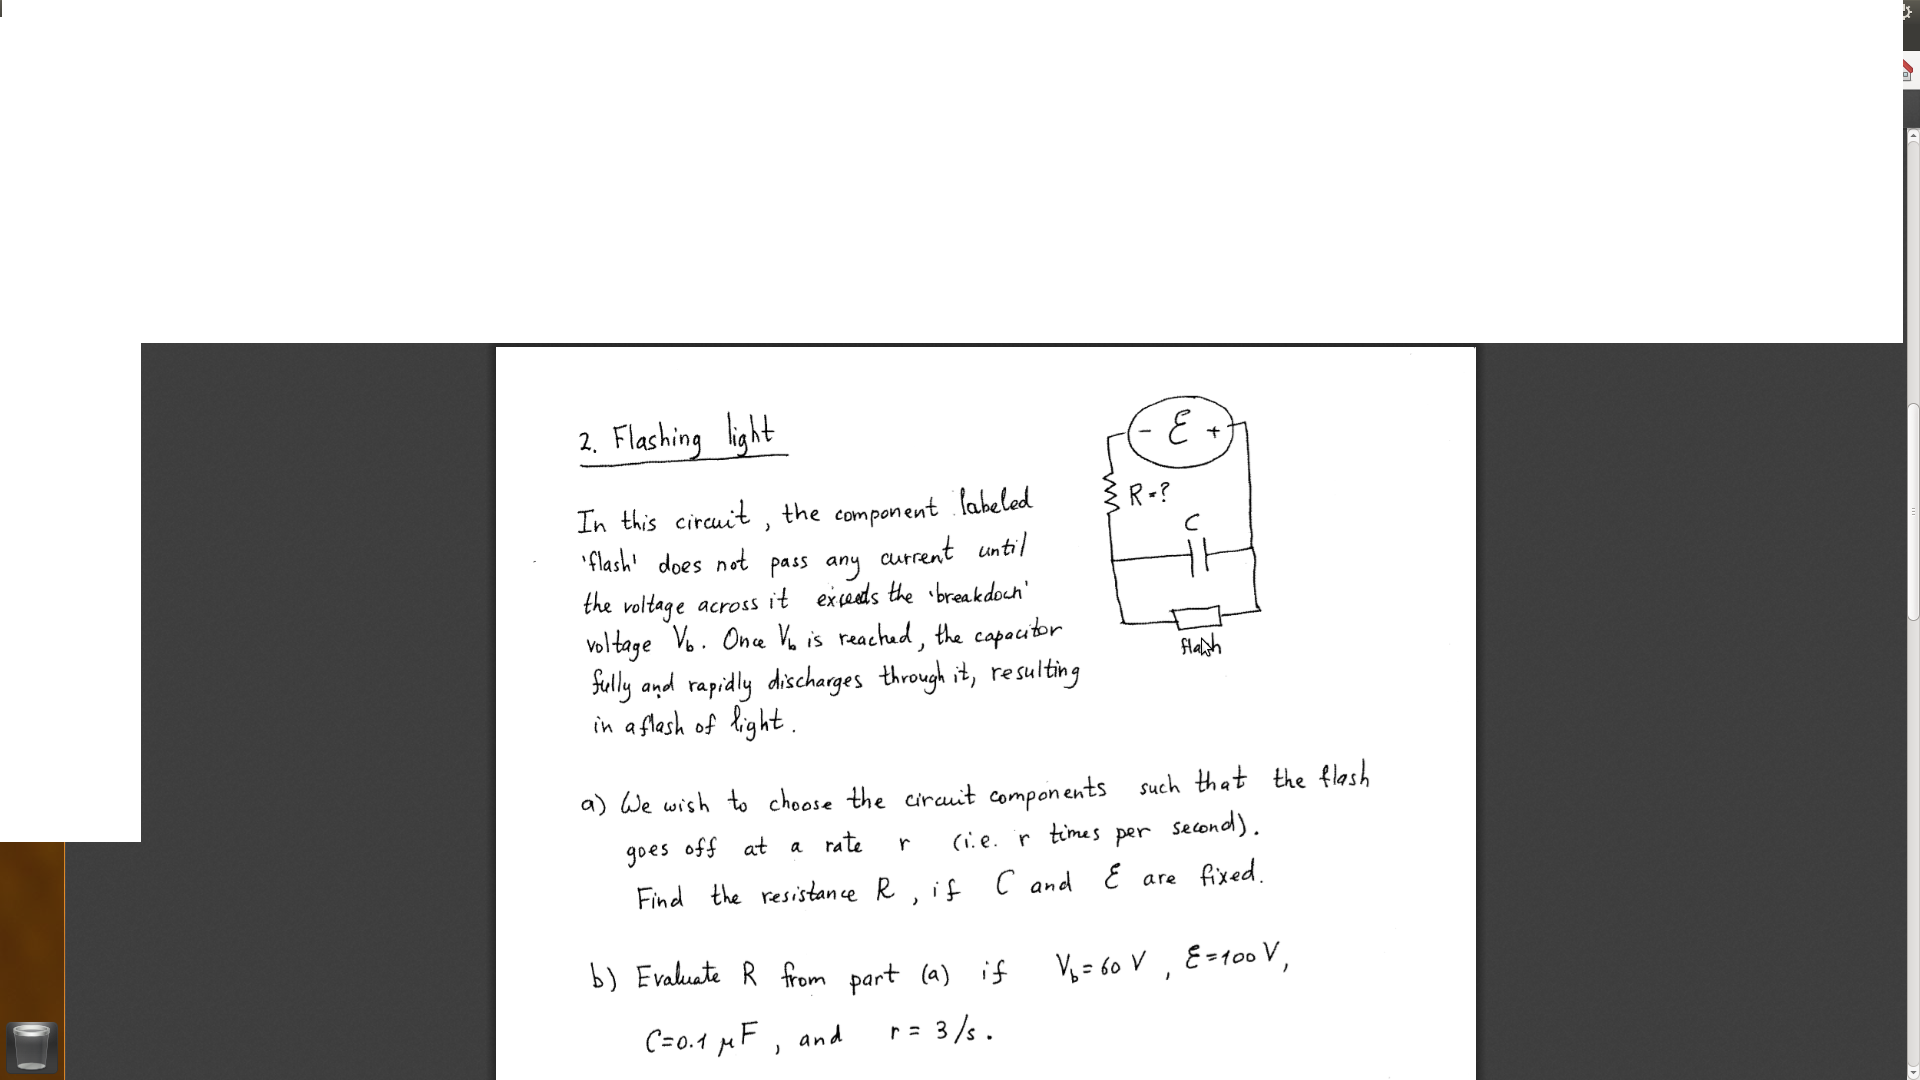 2. Flashing light
- ℰ +
R=?
C
flash
In this circuit, the component labeled
'flash' does not pass any current until
the voltage across it exceeds the 'breakdown'
voltage Vb. Once Vb is reached, the capacitor
fully and rapidly discharges through it, resulting
in a flash of light.
a) We wish to choose the circuit components such that the flash
goes off at a rate r (i.e. r times per second).
Find the resistance R, if C and ℰ are fixed.
b) Evaluate R from part (a) if Vb = 60 V, ℰ = 100 V,
C = 0.1 μF, and r = 3/s.